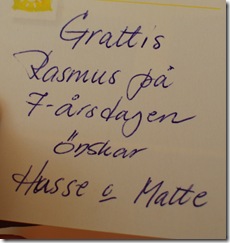 Grattis
Rasmus på
7-årsdagen
önskar
Husse o Matte